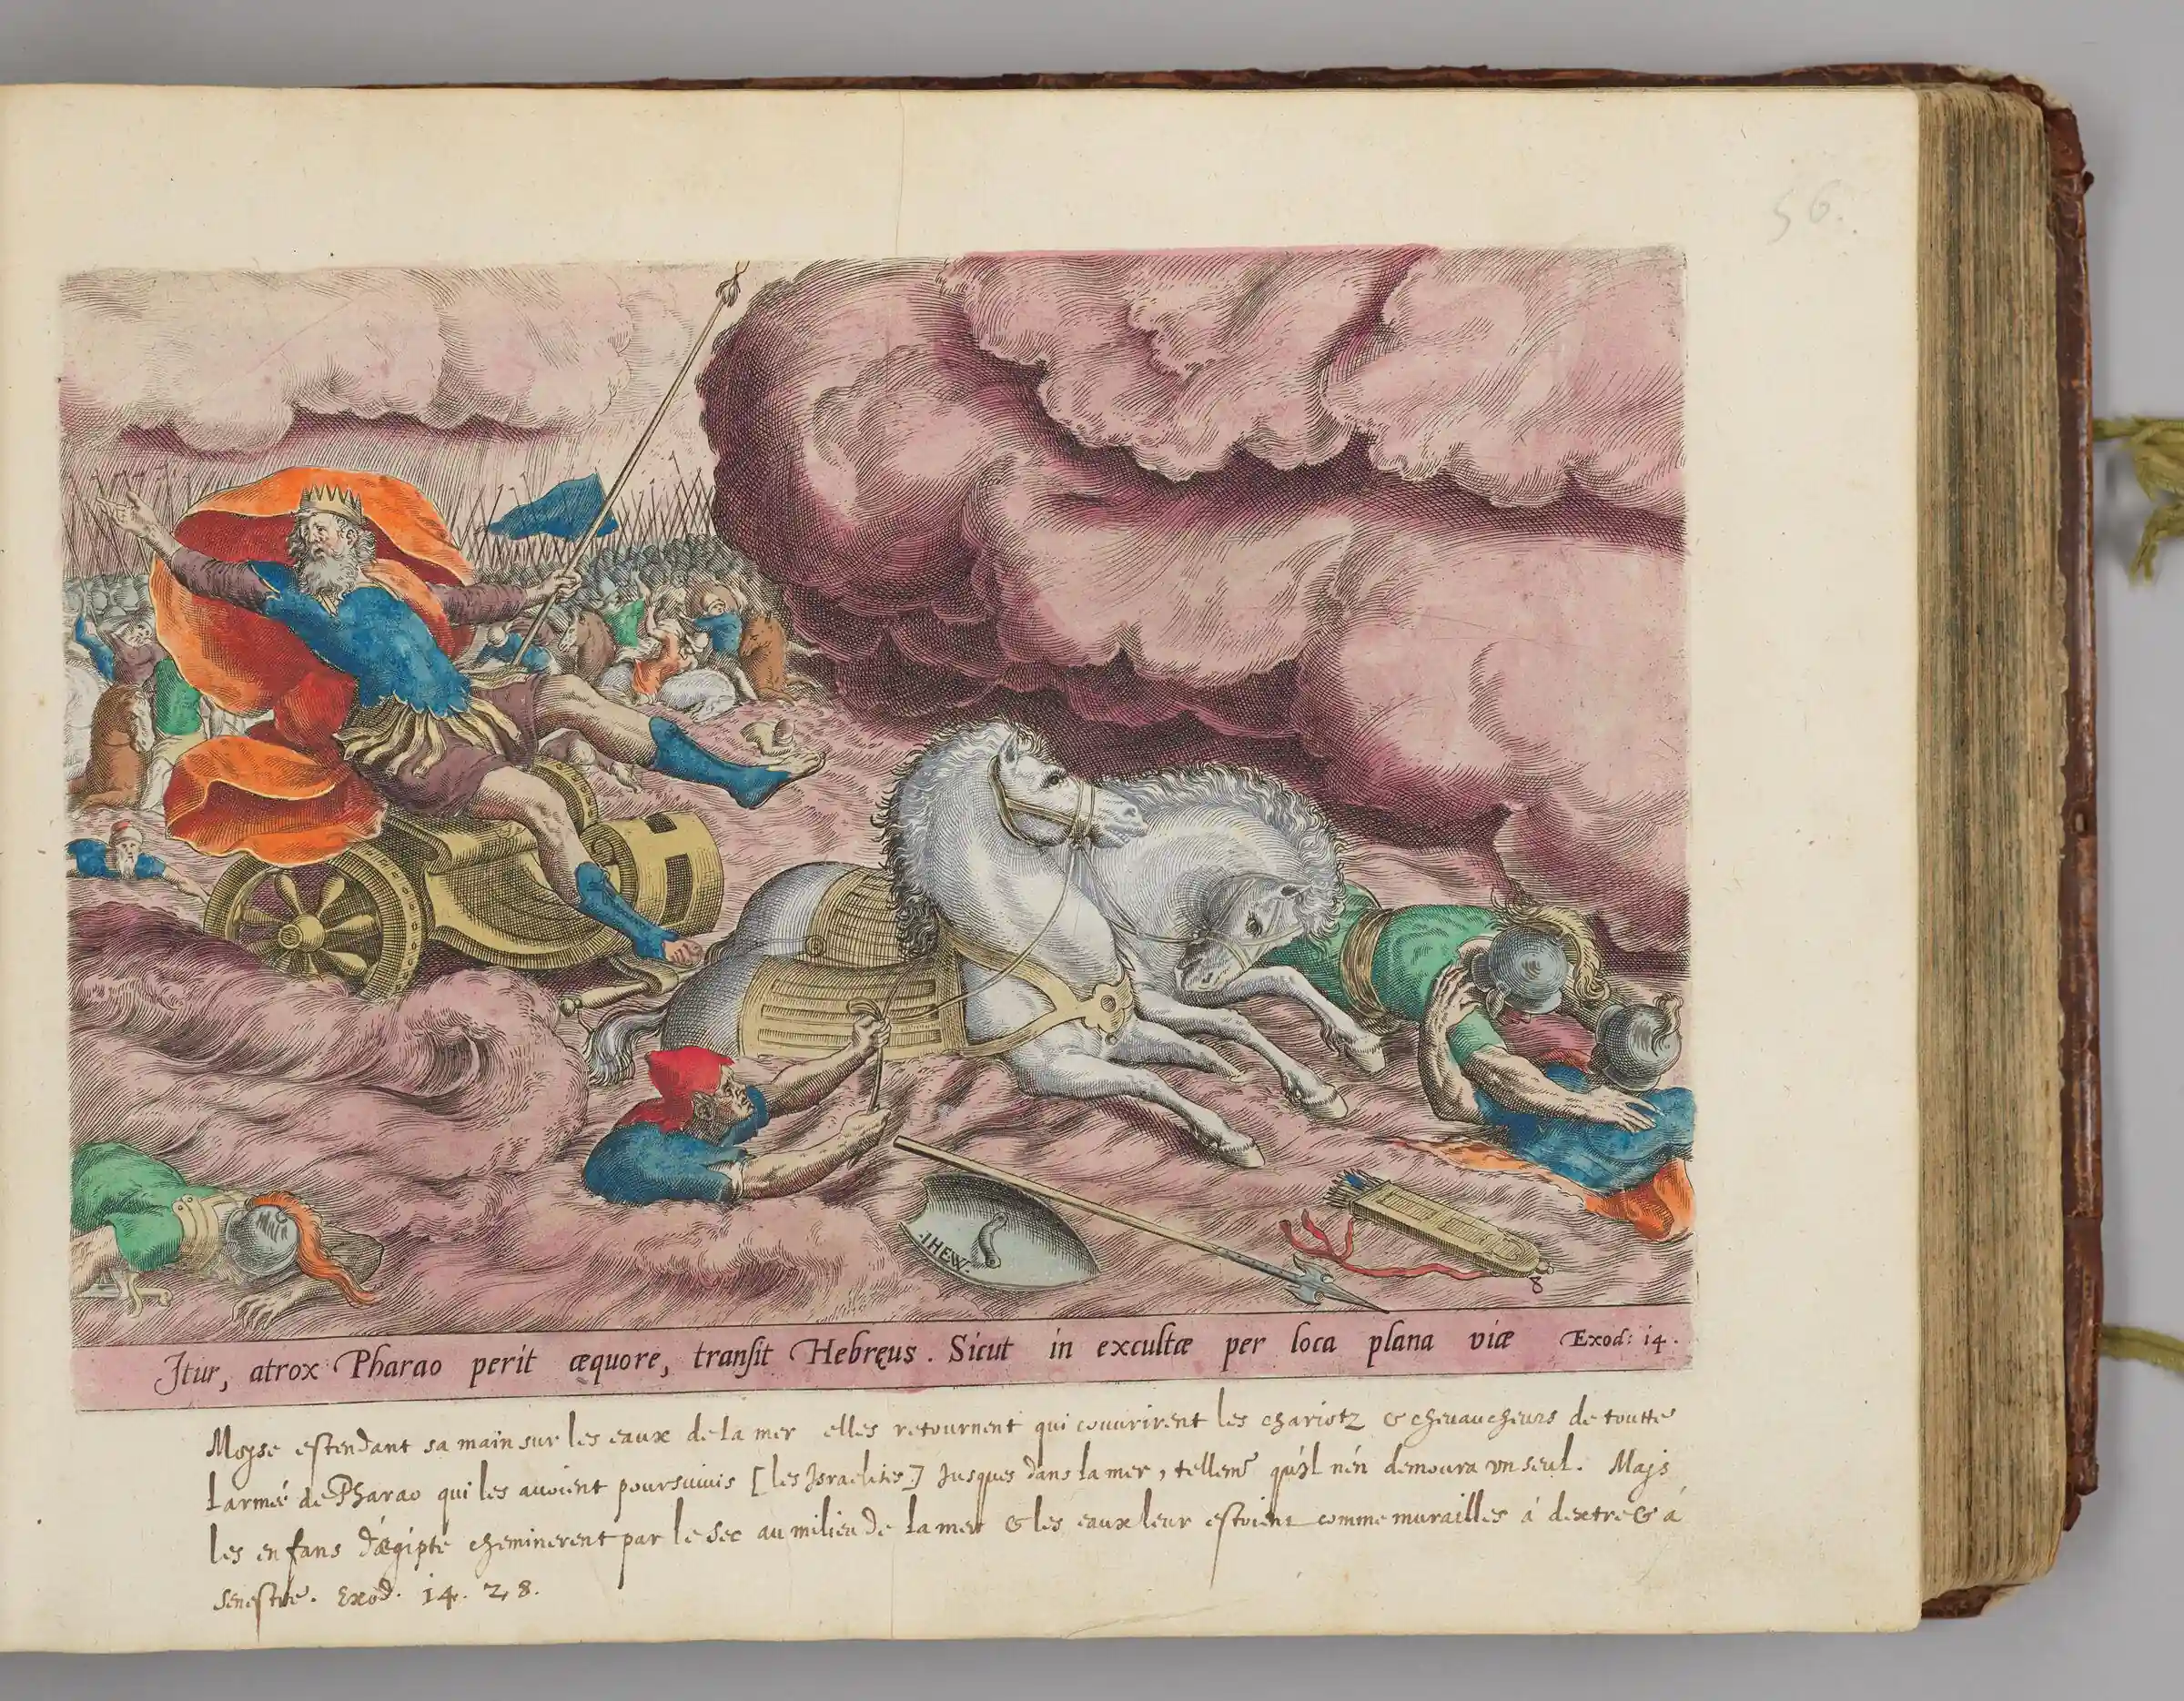 56.
.IHEW.
8
Itur, atrox Pharao perit æquore, transit Hebręus. Sicut in excultæ per loca plana viæ Exod: 14.
Moyse estendant sa main sur les eaux de la mer elles retournent qui couvrirent les chariotz & chevaucheurs de toutte
l'armeé de Pharao qui les avoient poursuivis [les Israelites] Jusques dans la mer, tellemt qu'il n'én demoura vn seul. Mais
les enfans d'ægipte cheminerent par le sec au milieu de la mer & les eaux leur estoient comme murailles á dextre & á
senestre. Exod. 14. 28.